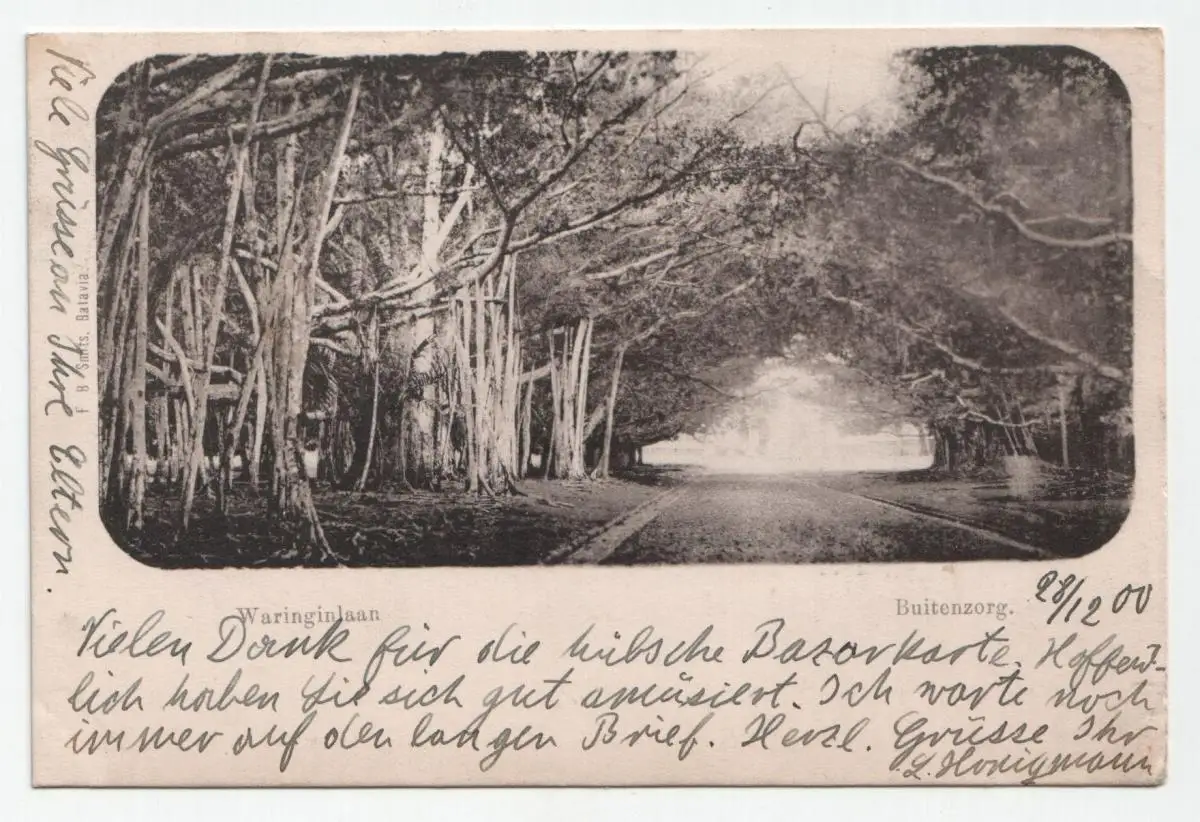 Viele Grüsse an Ihre Eltern.
F B Smits, Batavia.
Waringinlaan
Buitenzorg.
28/12 00
Vielen Dank für die hübsche Bazarkarte. Hoffent-
lich haben Sie sich gut amüsiert. Ich warte noch
immer auf den langen Brief. Herzl. Grüsse Ihr
L. Honigmann